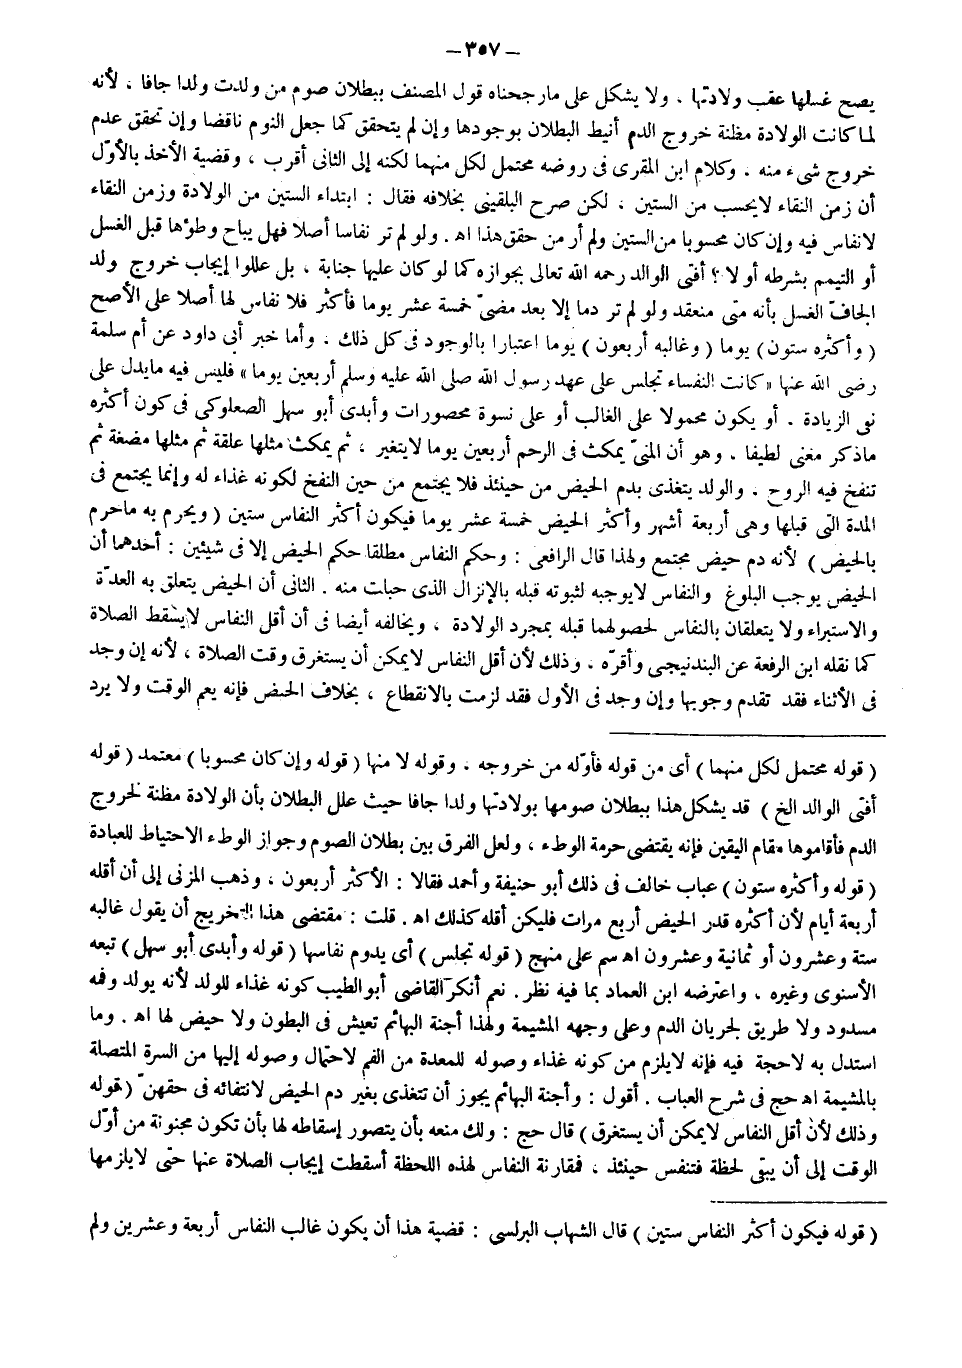 – ٣٥٧ –
يصح غسلها عقب ولادتها ، ولا يشكل على مارجحناه قول المصنف ببطلان صوم من ولدت ولدا جافا ، لأنه
لما كانت الولادة مظنة خروج الدم أنيط البطلان بوجودها وإن لم يتحقق كما جعل النوم ناقضا وإن تحقق عدم
خروج شىء منه ، وكلام ابن المقرى فى روضه محتمل لكل منهما لكنه إلى الثانى أقرب ، وقضية الأخذ بالأوّل
أن زمن النقاء لايحسب من الستين ، لكن صرح البلقينى بخلافه فقال : ابتداء الستين من الولادة وزمن النقاء
لانفاس فيه وإن كان محسوبا من الستين ولم أر من حقق هذا اه . ولو لم تر نفاسا أصلا فهل يباح وطؤها قبل الغسل
أو التيمم بشرطه أو لا ؟ أفتى الوالد رحمه الله تعالى بجوازه كما لو كان عليها جنابة ، بل عللوا إيجاب خروج ولد
الجافّ الغسل بأنه منى منعقد ولو لم تر دما إلا بعد مضىّ خمسة عشر يوما فأكثر فلا نفاس لها أصلا على الأصح
( وأكثره ستون) يوما ( وغالبه أربعون ) يوما اعتبارا بالوجود فى كل ذلك ، وأما خبر أبى داود عن أم سلمة
رضى الله عنها «كانت النفساء تجلس على عهد رسول الله صلى الله عليه وسلم أربعين يوما» فليس فيه مايدل على
نفى الزيادة . أو يكون محمولا على الغالب أو على نسوة محصورات وأبدى أبو سهل الصعلوكى فى كون أكثره
ماذكر معنى لطيفا ، وهو أن المنىّ يمكث فى الرحم أربعين يوما لايتغير ، ثم يمكث مثلها علقة ثم مثلها مضغة ثم
تنفخ فيه الروح ، والولد يتغذى بدم الحيض من حينئذ فلا يجتمع من حين النفخ لكونه غذاء له وإنما يجتمع فى
المدة التى قبلها وهى أربعة أشهر وأكثر الحيض خمسة عشر يوما فيكون أكثر النفاس ستين ( ويحرم به ماحرم
بالحيض ) لأنه دم حيض مجتمع ولهذا قال الرافعى : وحكم النفاس مطلقا حكم الحيض إلا فى شيئين : أحدهما أن
الحيض يوجب البلوغ والنفاس لايوجبه لثبوته قبله بالإنزال الذى حبلت منه . الثانى أن الحيض يتعلق به العدّة
والاستبراء ولا يتعلقان بالنفاس لحصولهما قبله بمجرد الولادة ، ويخالفه أيضا فى أن أقل النفاس لايسقط الصلاة
كما نقله ابن الرفعة عن البندنيجى وأقرّه ، وذلك لأن أقل النفاس لايمكن أن يستغرق وقت الصلاة ، لأنه إن وجد
فى الأثناء فقد تقدم وجوبها وإن وجد فى الأول فقد لزمت بالانقطاع ، بخلاف الحيض فإنه يعم الوقت ولا يرد
( قوله محتمل لكل منهما ) أى من قوله فأوّله من خروجه ، وقوله لا منها ( قوله وإن كان محسوبا ) معتمد ( قوله
أفتى الوالد الخ ) قد يشكل هذا ببطلان صومها بولادتها ولدا جافا حيث علل البطلان بأن الولادة مظنة لخروج
الدم فأقاموها مقام اليقين فإنه يقتضى حرمة الوطء ، ولعل الفرق بين بطلان الصوم وجواز الوطء الاحتياط للعبادة
( قوله وأكثره ستون ) عباب خالف فى ذلك أبو حنيفة وأحمد فقالا : الأكثر أربعون ، وذهب المزنى إلى أن أقله
أربعة أيام لأن أكثره قدر الحيض أربع مرات فليكن أقله كذلك اه . قلت : مقتضى هذا التخريج أن يقول غالبه
ستة وعشرون أو ثمانية وعشرون اه سم على منهج ( قوله تجلس ) أى يدوم نفاسها ( قوله وأبدى أبو سهل ) تبعه
الأسنوى وغيره ، واعترضه ابن العماد بما فيه نظر . نعم أنكر القاضى أبو الطيب كونه غذاء للولد لأنه يولد وفمه
مسدود ولا طريق لجريان الدم وعلى وجهه المشيمة ولهذا أجنة البهائم تعيش فى البطون ولا حيض لها اه . وما
استدل به لاحجة فيه فإنه لايلزم من كونه غذاء وصوله للمعدة من الفم لاحتمال وصوله إليها من السرة المتصلة
بالمشيمة اه حج فى شرح العباب . أقول : وأجنة البهائم يجوز أن تتغذى بغير دم الحيض لانتفائه فى حقهنّ ( قوله
وذلك لأن أقل النفاس لايمكن أن يستغرق ) قال حج : ولك منعه بأن يتصور إسقاطه لها بأن تكون مجنونة من أوّل
الوقت إلى أن يبقى لحظة فتنفس حينئذ ، فمقارنة النفاس لهذه اللحظة أسقطت إيجاب الصلاة عنها حتى لايلزمها
( قوله فيكون أكثر النفاس ستين ) قال الشهاب البرلسى : قضية هذا أن يكون غالب النفاس أربعة وعشرين ولم